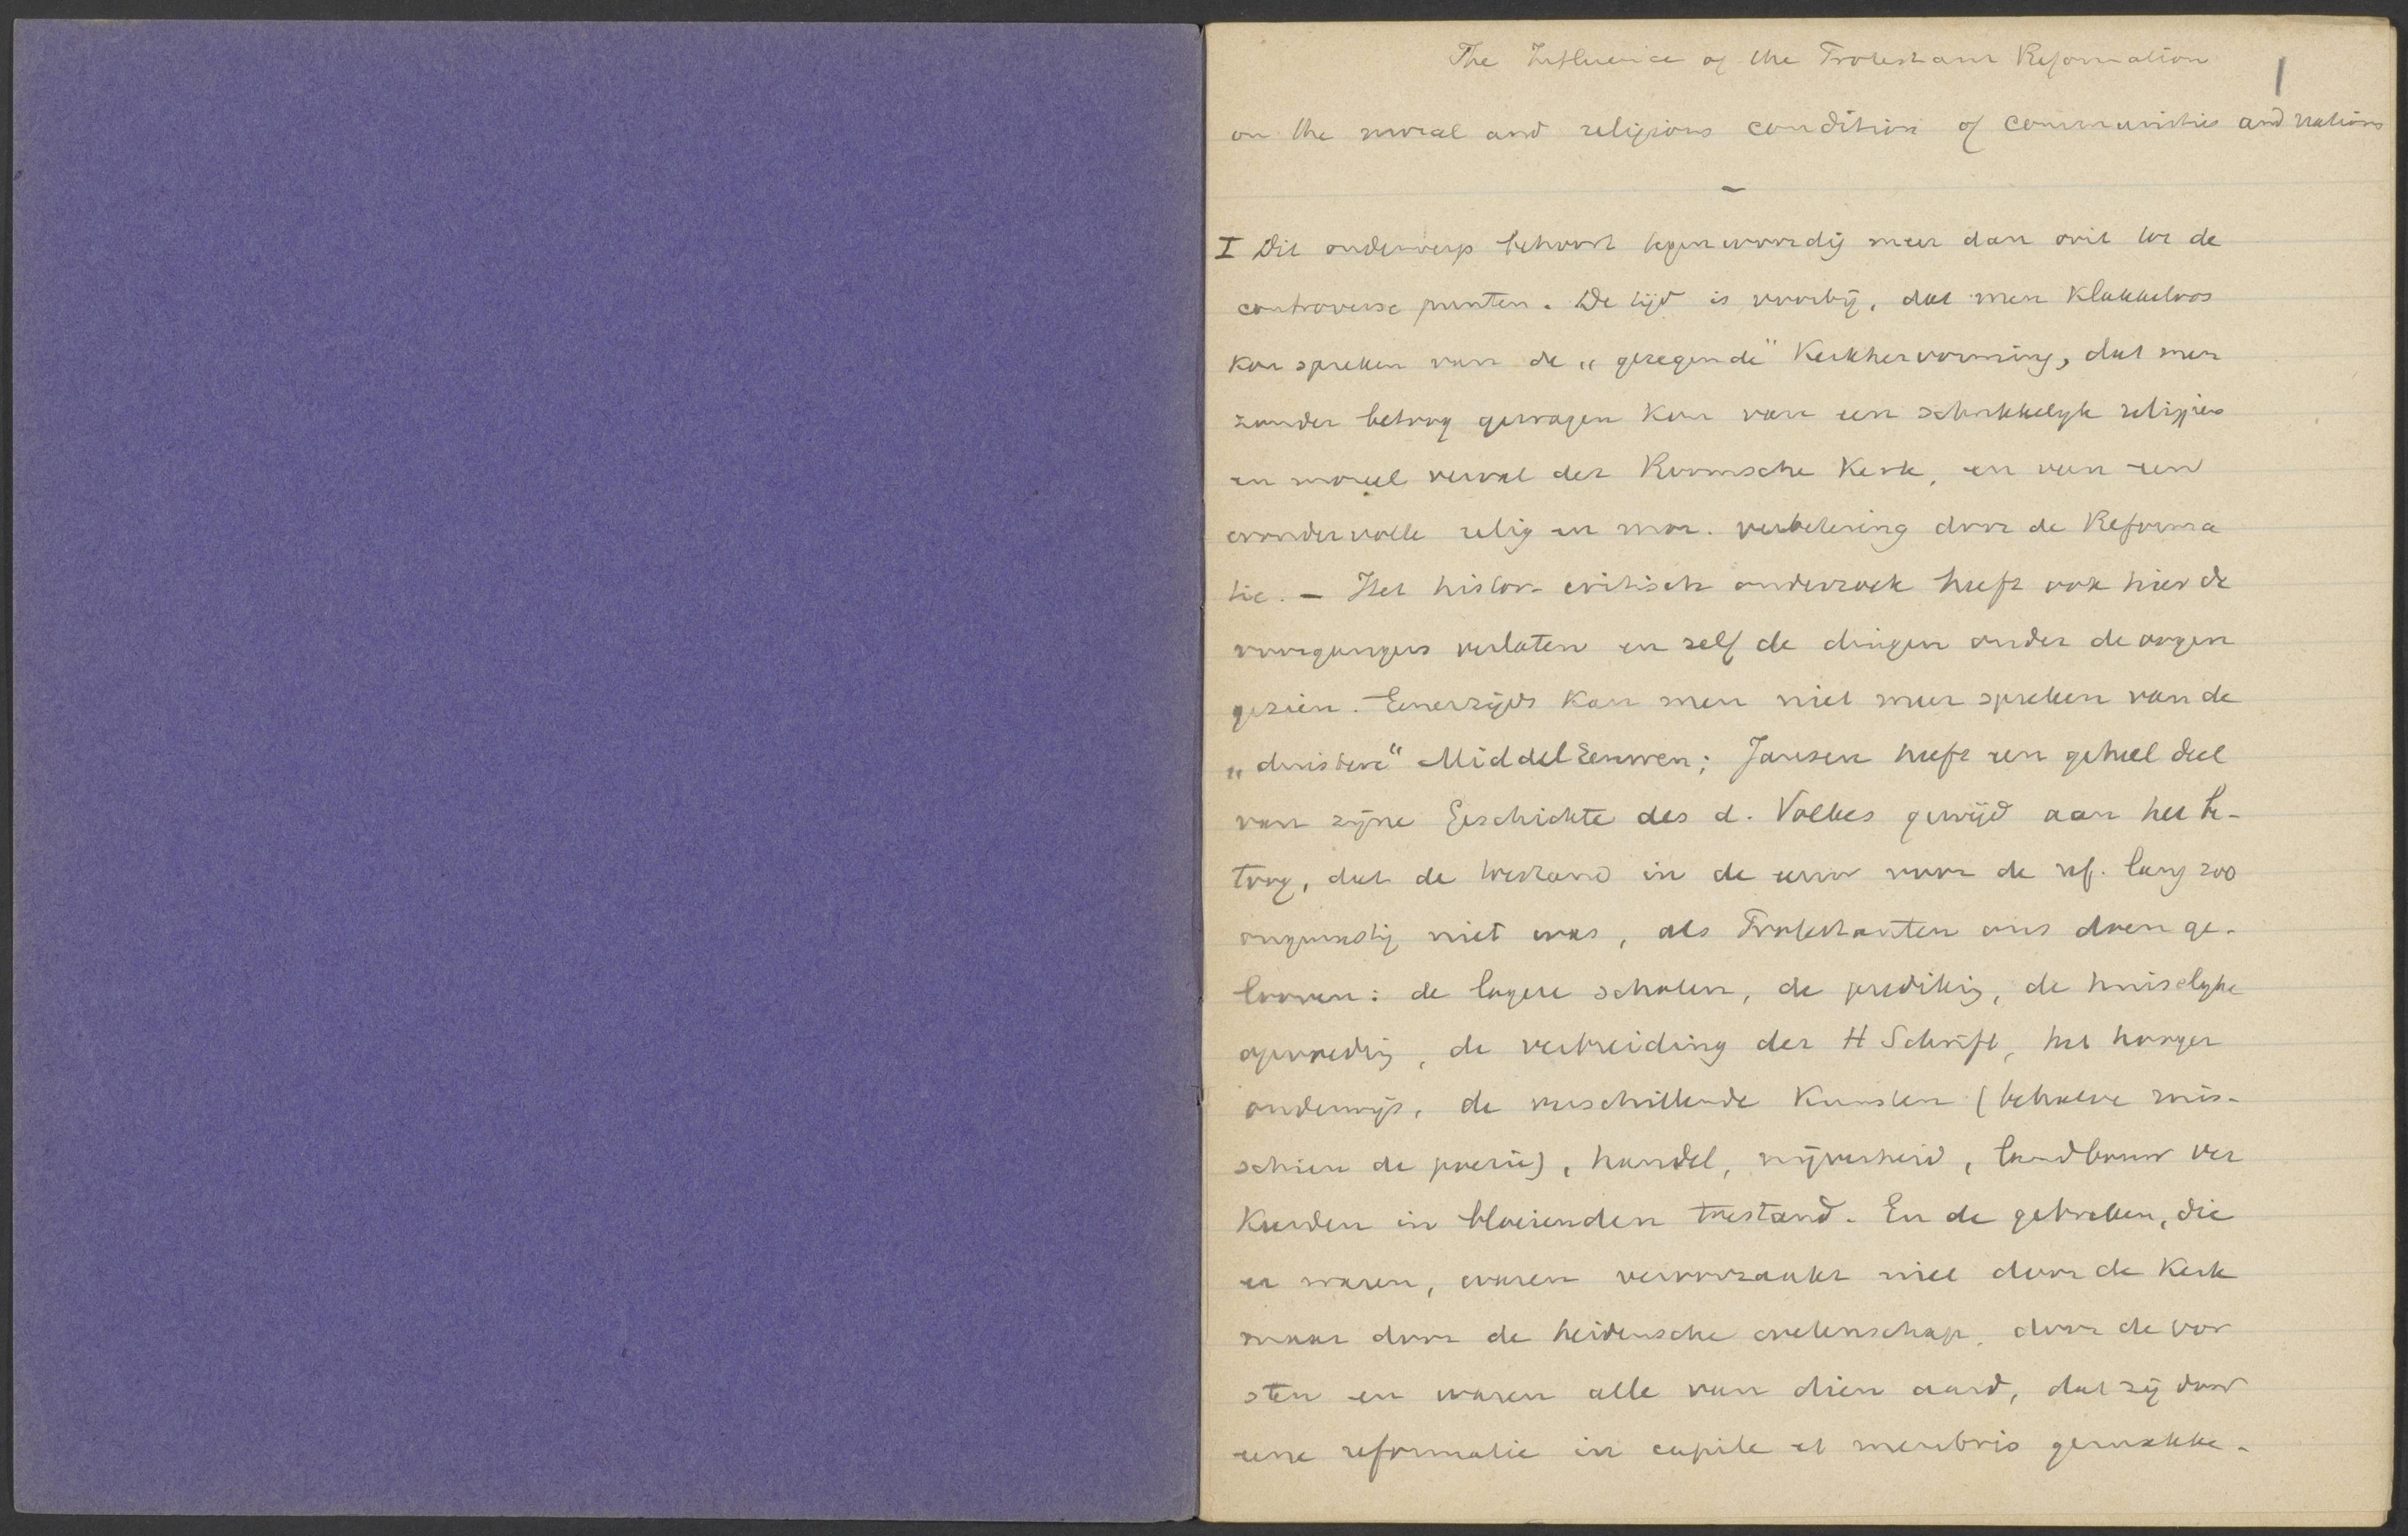 The Influence of the Protestant Reformation
1
on the moral and religious condition of communities and nations
I Dit onderwerp behoort tegenwoordig meer dan ooit tot de
controverse punten. De tijd is voorbij, dat men klakkeloos
kon spreken van de „gezegende" Kerkhervorming, dat men
zonder betoog gewagen kon van een schrikkelyk religieus
en moreel verval der Roomsche Kerk, en van een
wondervolle relig en mor. verbetering door de Reforma
tie. — Het histor- critisch onderzoek heeft ook hier de
voorgangers verlaten en zelf de dingen onder de oogen
gezien. Eenerzijds kan men niet meer spreken van de
„duistere" MiddelEeuwen; Jansen heeft een geheel deel
van zijne Geschichte des d. Volkes gewijd aan het be-
toog, dat de toestand in de eeuw voor de ref. lang zoo
ongunstig niet was, als Protestanten ons doen ge-
looven: de lagere scholen, de prediking, de huiselyke
opvoeding, de verbreiding der H Schrift, het hooger
onderwijs, de verschillende Kunsten (behalve mis-
schien de poezie), handel, nijverheid, landbouw ver
Keerden in bloeienden toestand. En de gebreken, die
er waren, waren veroorzaakt niet door de Kerk
maar door de heidensche wetenschap, door de vor
sten en waren alle van dien aard, dat zij door
eene reformatie in capite et membris gemakke-